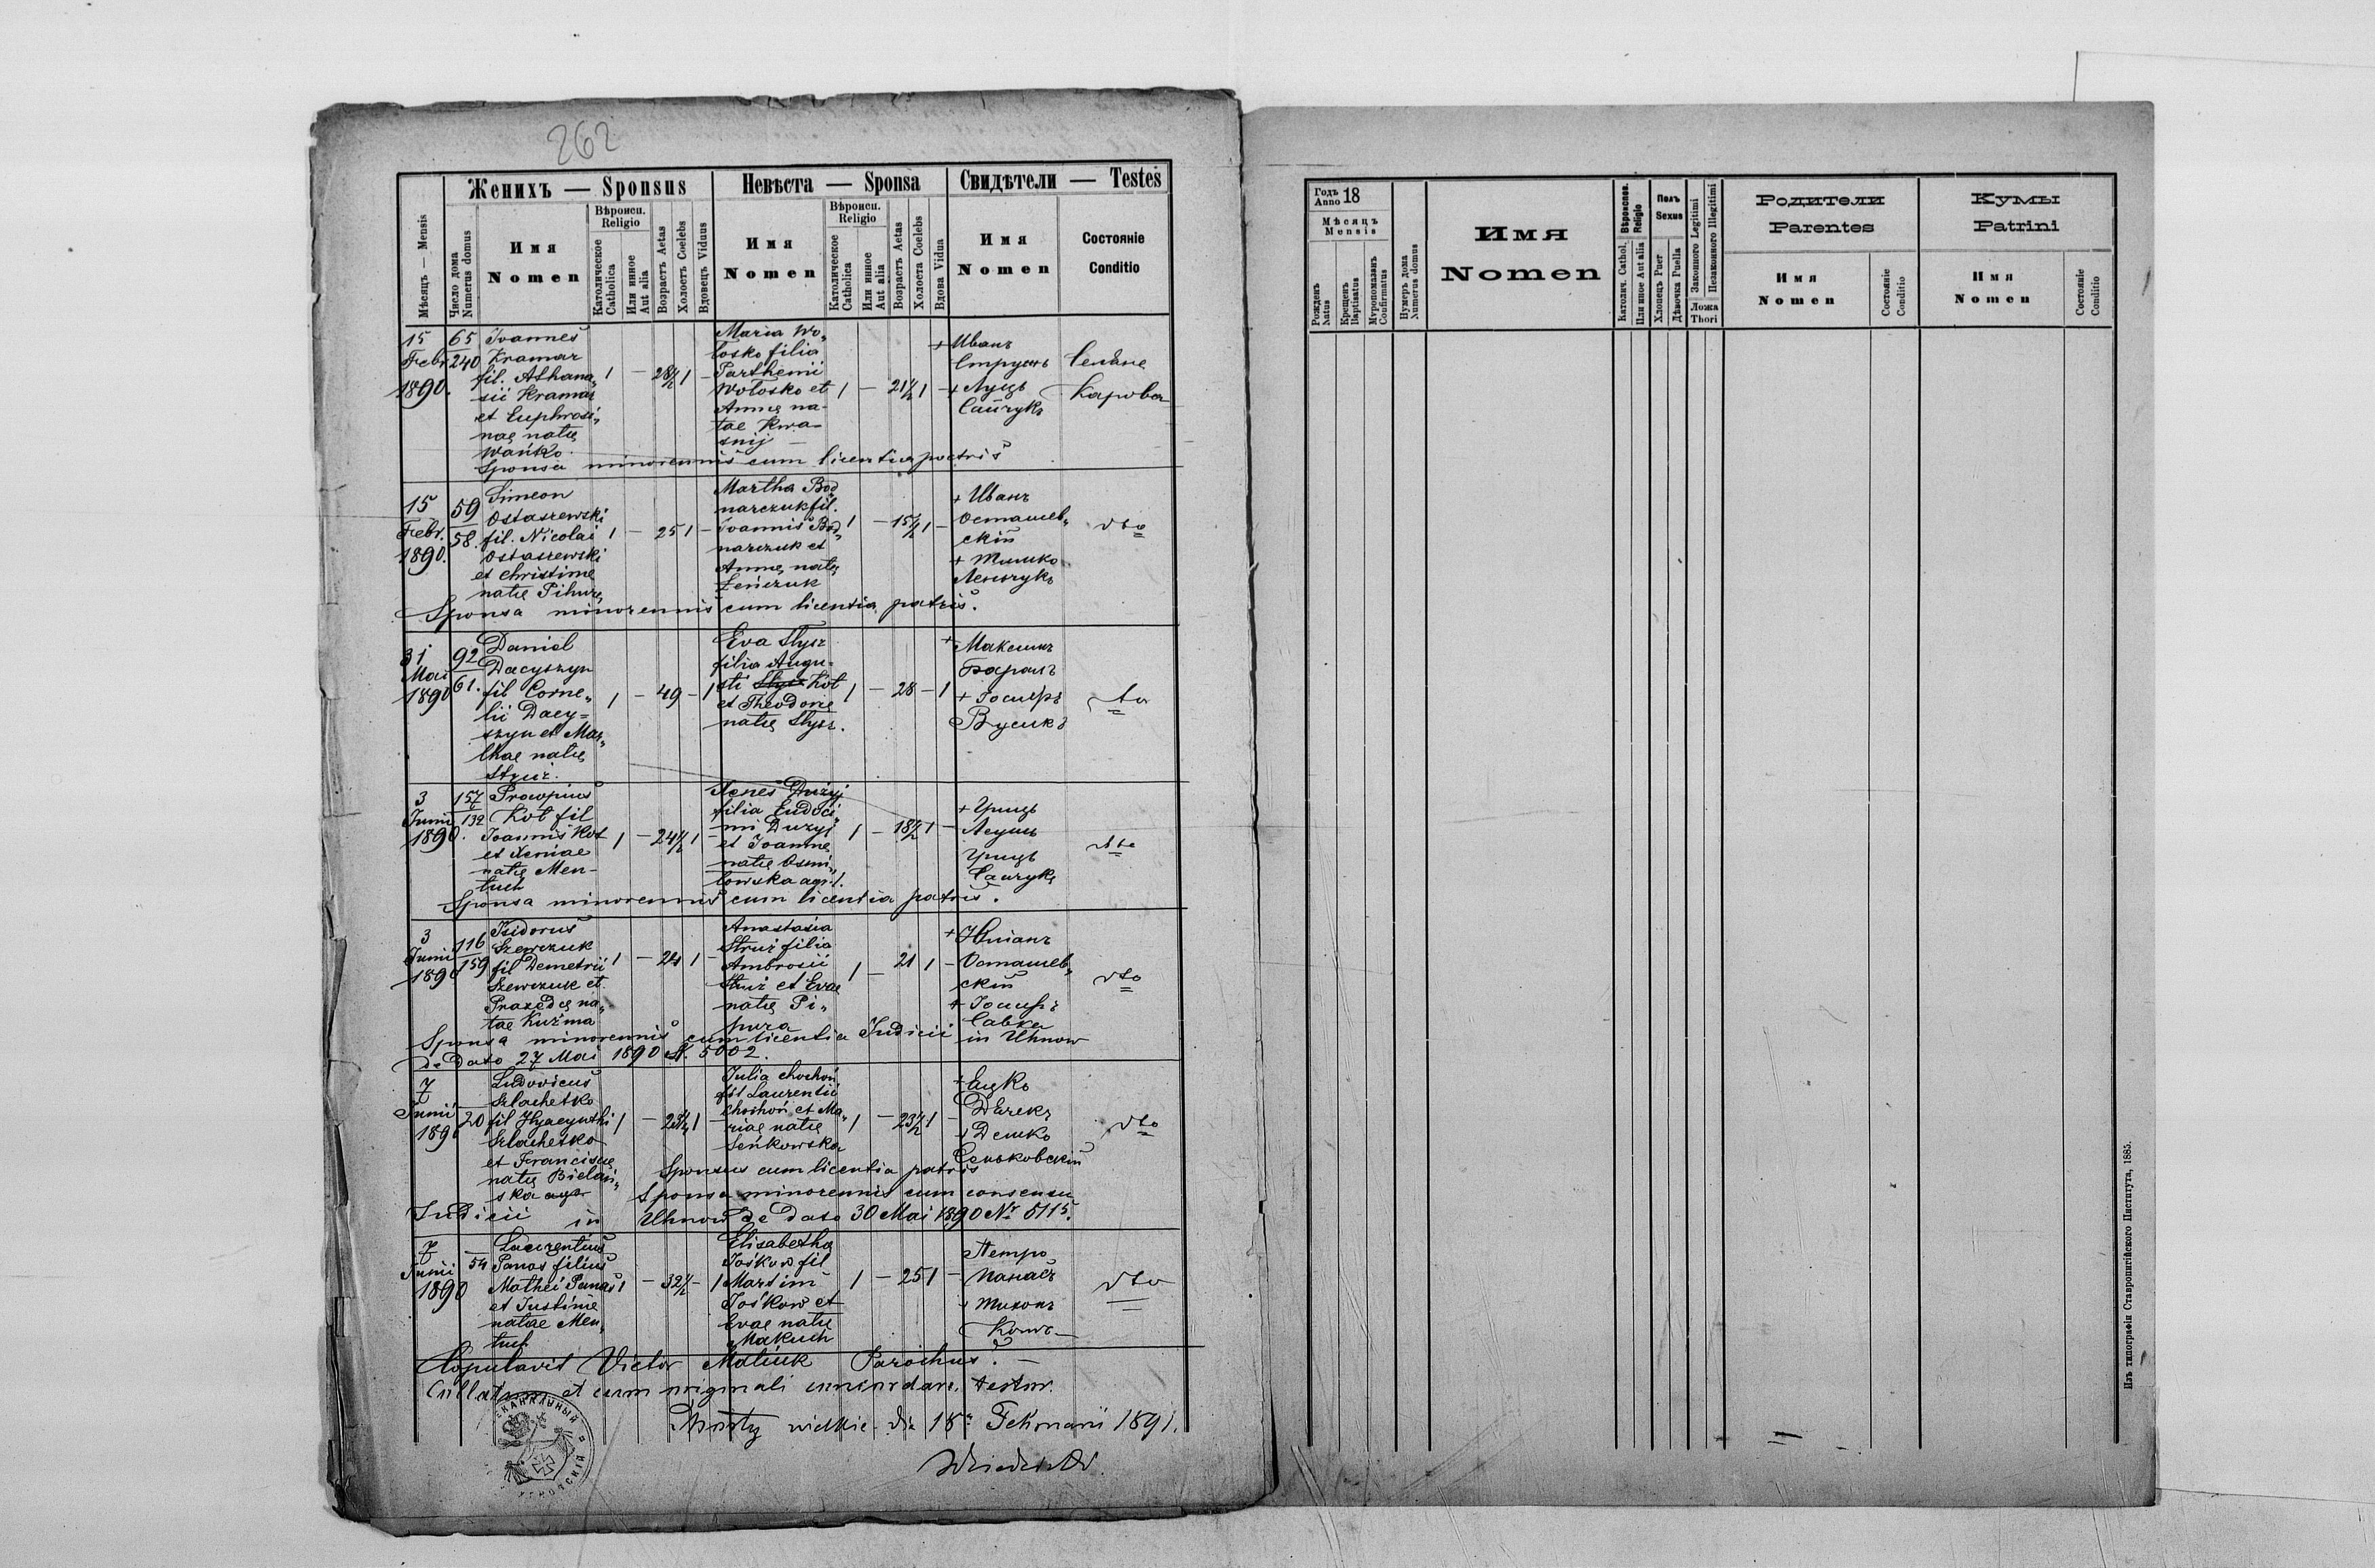 262
Женихъ — Sponsus
Невѣста — Sponsa
Свидѣтели — Testes
Мѣсяцъ — Mensis
Число дома
Numerus domus
Имя
Nomen
Вѣроисп.
Religio
Католическое
Catholica
Или инное
Aut alia
Возрастъ Aetas
Холостъ Coelebs
Вдовецъ Viduus
Имя
Nomen
Вѣроисп.
Religio
Католическое
Catholica
Или инное
Aut alia
Возрастъ Aetas
Холоста Coelebs
Вдова Vidua
Имя
Nomen
Состояніе
Conditio
15
Febr.
1890.
65
240
Joannes
Kramar
fil. Athana„
sii Kramar
et Euphrosi„
nae natae
Wańko.
1 — 28½ 1 —
Maria Wo„
łosko filia
Parthemii
Wołosko et
Annae na-
tae Kwa-
snij —
1 — 21½ 1 —
+ Иванъ
Струсъ
+ Луць
Сайчукъ
Селяне
Карова
Sponsa minorennis cum licentia patris
15
Febr.
1890.
59
58.
Simeon
Ostaszewski
fil. Nicolai
Ostaszewski
et Christinae
natae Pihura
1 — 25 1 —
Martha Bod„
narczuk fil.
Joannis Bod„
narczuk et
Annae natae
Łeńczuk
1 — 15½ 1 —
+ Иванъ
Осташев„
скій
+ Тимко
Леньчукъ
dto
Sponsa minorennis cum licentia patris.
31
Mai
1890
92
61.
Daniel
Dacyszyn
fil Corne„
lii Dacy=
szyn et Mar„
thae natae
Struż.
1 — 49 — 1
Eva Słysz
filia Augu-
sti Kot
et Theodorae
natae Słysz.
1 — 28 — 1
+ Максимъ
Баранъ
+ Іосифъ
Вусикъ
dto
3
Junii
1890.
157
132
Procopius
Kot fil
Joannis Kot
et Xeniae
natae Men-
tuch
1 — 24½ 1 —
Agnes Duzyj
filia Eudoci„
mi Duzyj
et Joannae
natae Osmi„
łowska agr.
1 — 18½ 1 —
+ Гриць
Гриць
Сайчукъ
dto
Sponsa minorennis cum licentia patris.
3
Junii
1890
116
159
Isidorus
Szewczuk
fil Demetrii
Szewczuk et
Praxedae na„
tae Kuźma
1 — 24 1 —
Anastasia
Struż filia
Ambrosii
Struż et Evae
natae Pi„
hura
1 — 21 1 —
+ Юліанъ
Осташев„
скій
+ Іосифъ
Савка
dto
Sponsa minorennis cum licentia Judicii in Uhnow
de dato 27 Mai 1890 N. 5002.
7
Junii
1890
20
Ludovicus
Szlachetko
fil Hyacynthi
Szlachetko
et Franciscae
natae Bielań„
ska agr
1 — 23½ 1 —
Julia Chochoń
fil Laurentii
Chochoń et Ma„
riae natae
Seńkowska
1 — 23½ 1 —
+ Яцко
Дѣчекъ
+ Демко
Сеньковскій
dto
Sponsus cum licentia patris
Sponsa minorennis cum consensu
Judicii in Uhnow de dato 30 Mai 1890 Nr 5115.
7
Junii
1890
54
Laurentius
Panas filius
Mathei Panas
et Justinae
natae Men„
tuch
1 — 32½ — 1
Elisabetha
Jośkow fil
Martini
Jośkow et
Evae natae
Makuch
1 — 25 1 —
Петро
Панасъ
+ Тихонъ
dto
Copulavit Victor Matiuk Parochus. —
Collatum et cum originali concordare testor.
Mosty wielkie die 18. Februarii 1891.
Годъ
Anno 18
Мѣсяцъ
Mensis
Рожденъ
Natus
Крещенъ
Baptisatus
Мѵропомазанъ
Confirmatus
Нумеръ дома
Numerus domus
Имя
Nomen
Вѣроиспов.
Religio
Католич. Cathol.
Или иное Aut alia
Полъ
Sexus
Хлопецъ Puer
Дѣвочка Puella
Законного Legitimi
Незаконного Illegitimi
Ложа
Thori
Родители
Parentes
Имя
Nomen
Состояніе
Conditio
Кумы
Patrini
Имя
Nomen
Состояніе
Conditio
Изъ типографіи Ставропигійского Института, 1885.